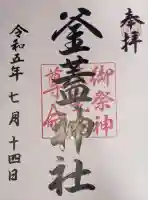 奉拝
釜蓋神社
御祭神
尊命
令和五年七月十四日